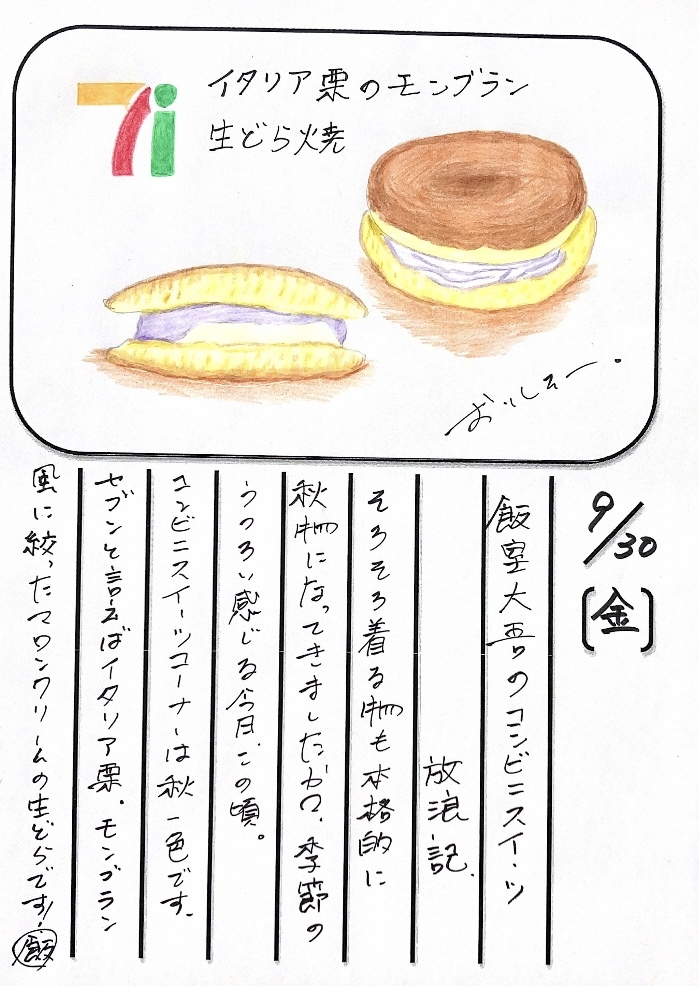 7i
イタリア栗のモンブラン
生どら焼
おいしそー.
9/30
[金]
飯室大吾のコンビニスイーツ
放浪記.
そろそろ着る物も本格的に
秋物になってきましたがＱ、季節の
うつろい感じる今日、この頃。
コンビニスイーツコーナーは秋一色です.
セブンと言えばイタリア栗.モンブラン
風に絞ったマロンクリームの生どらです!
飯